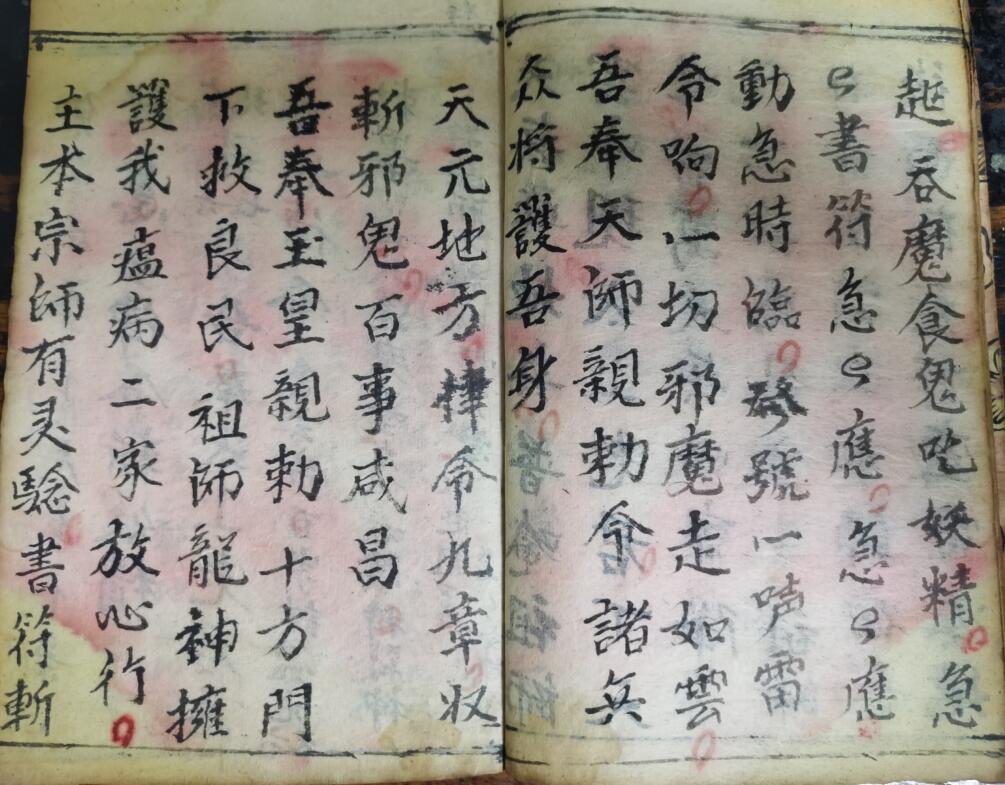 起吞魔食鬼吃妖精急
々書符急々應急々應
動急時臨發號一声雷
令响一切邪魔走如雲
吾奉天師親勅令諸兵
众將護吾身
天元地方律令九章収
斬邪鬼百事咸昌
吾奉玉皇親勅十方門
下救良民祖師龍神擁
護我瘟病二家放心行
主本宗師有灵驗書符斬